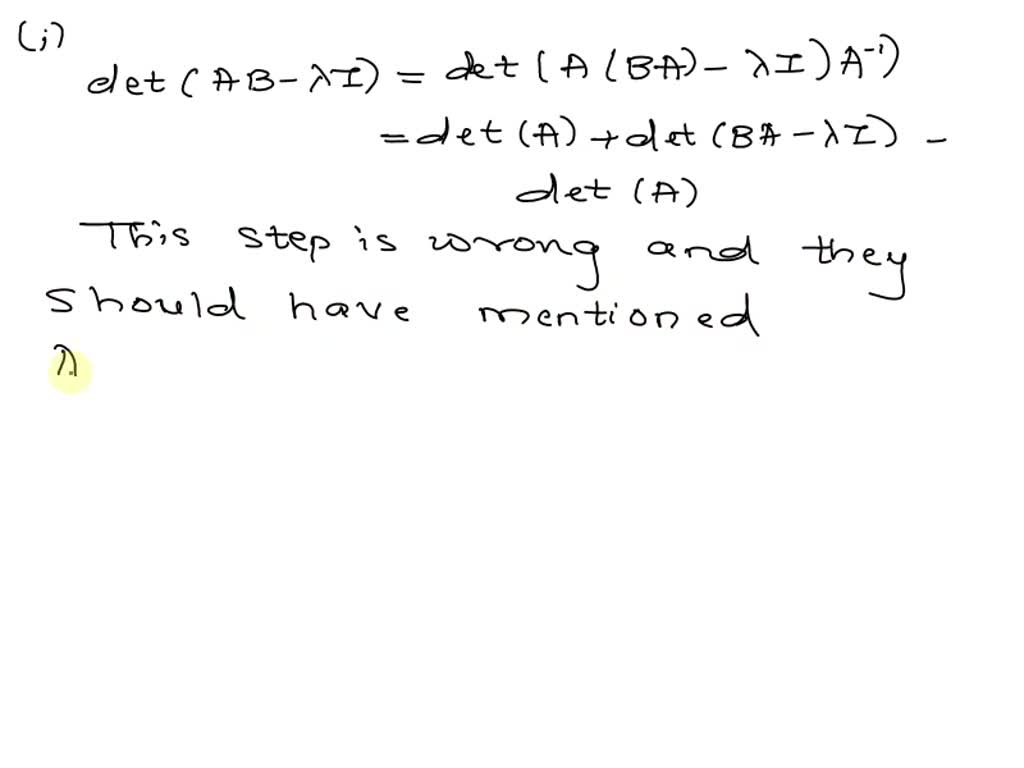 (i)
det(AB-λI) = det(A(BA)-λI)A⁻¹)
=det(A)+det(BA-λI) -
det(A)
This step is wrong and they
should have mentioned
λ